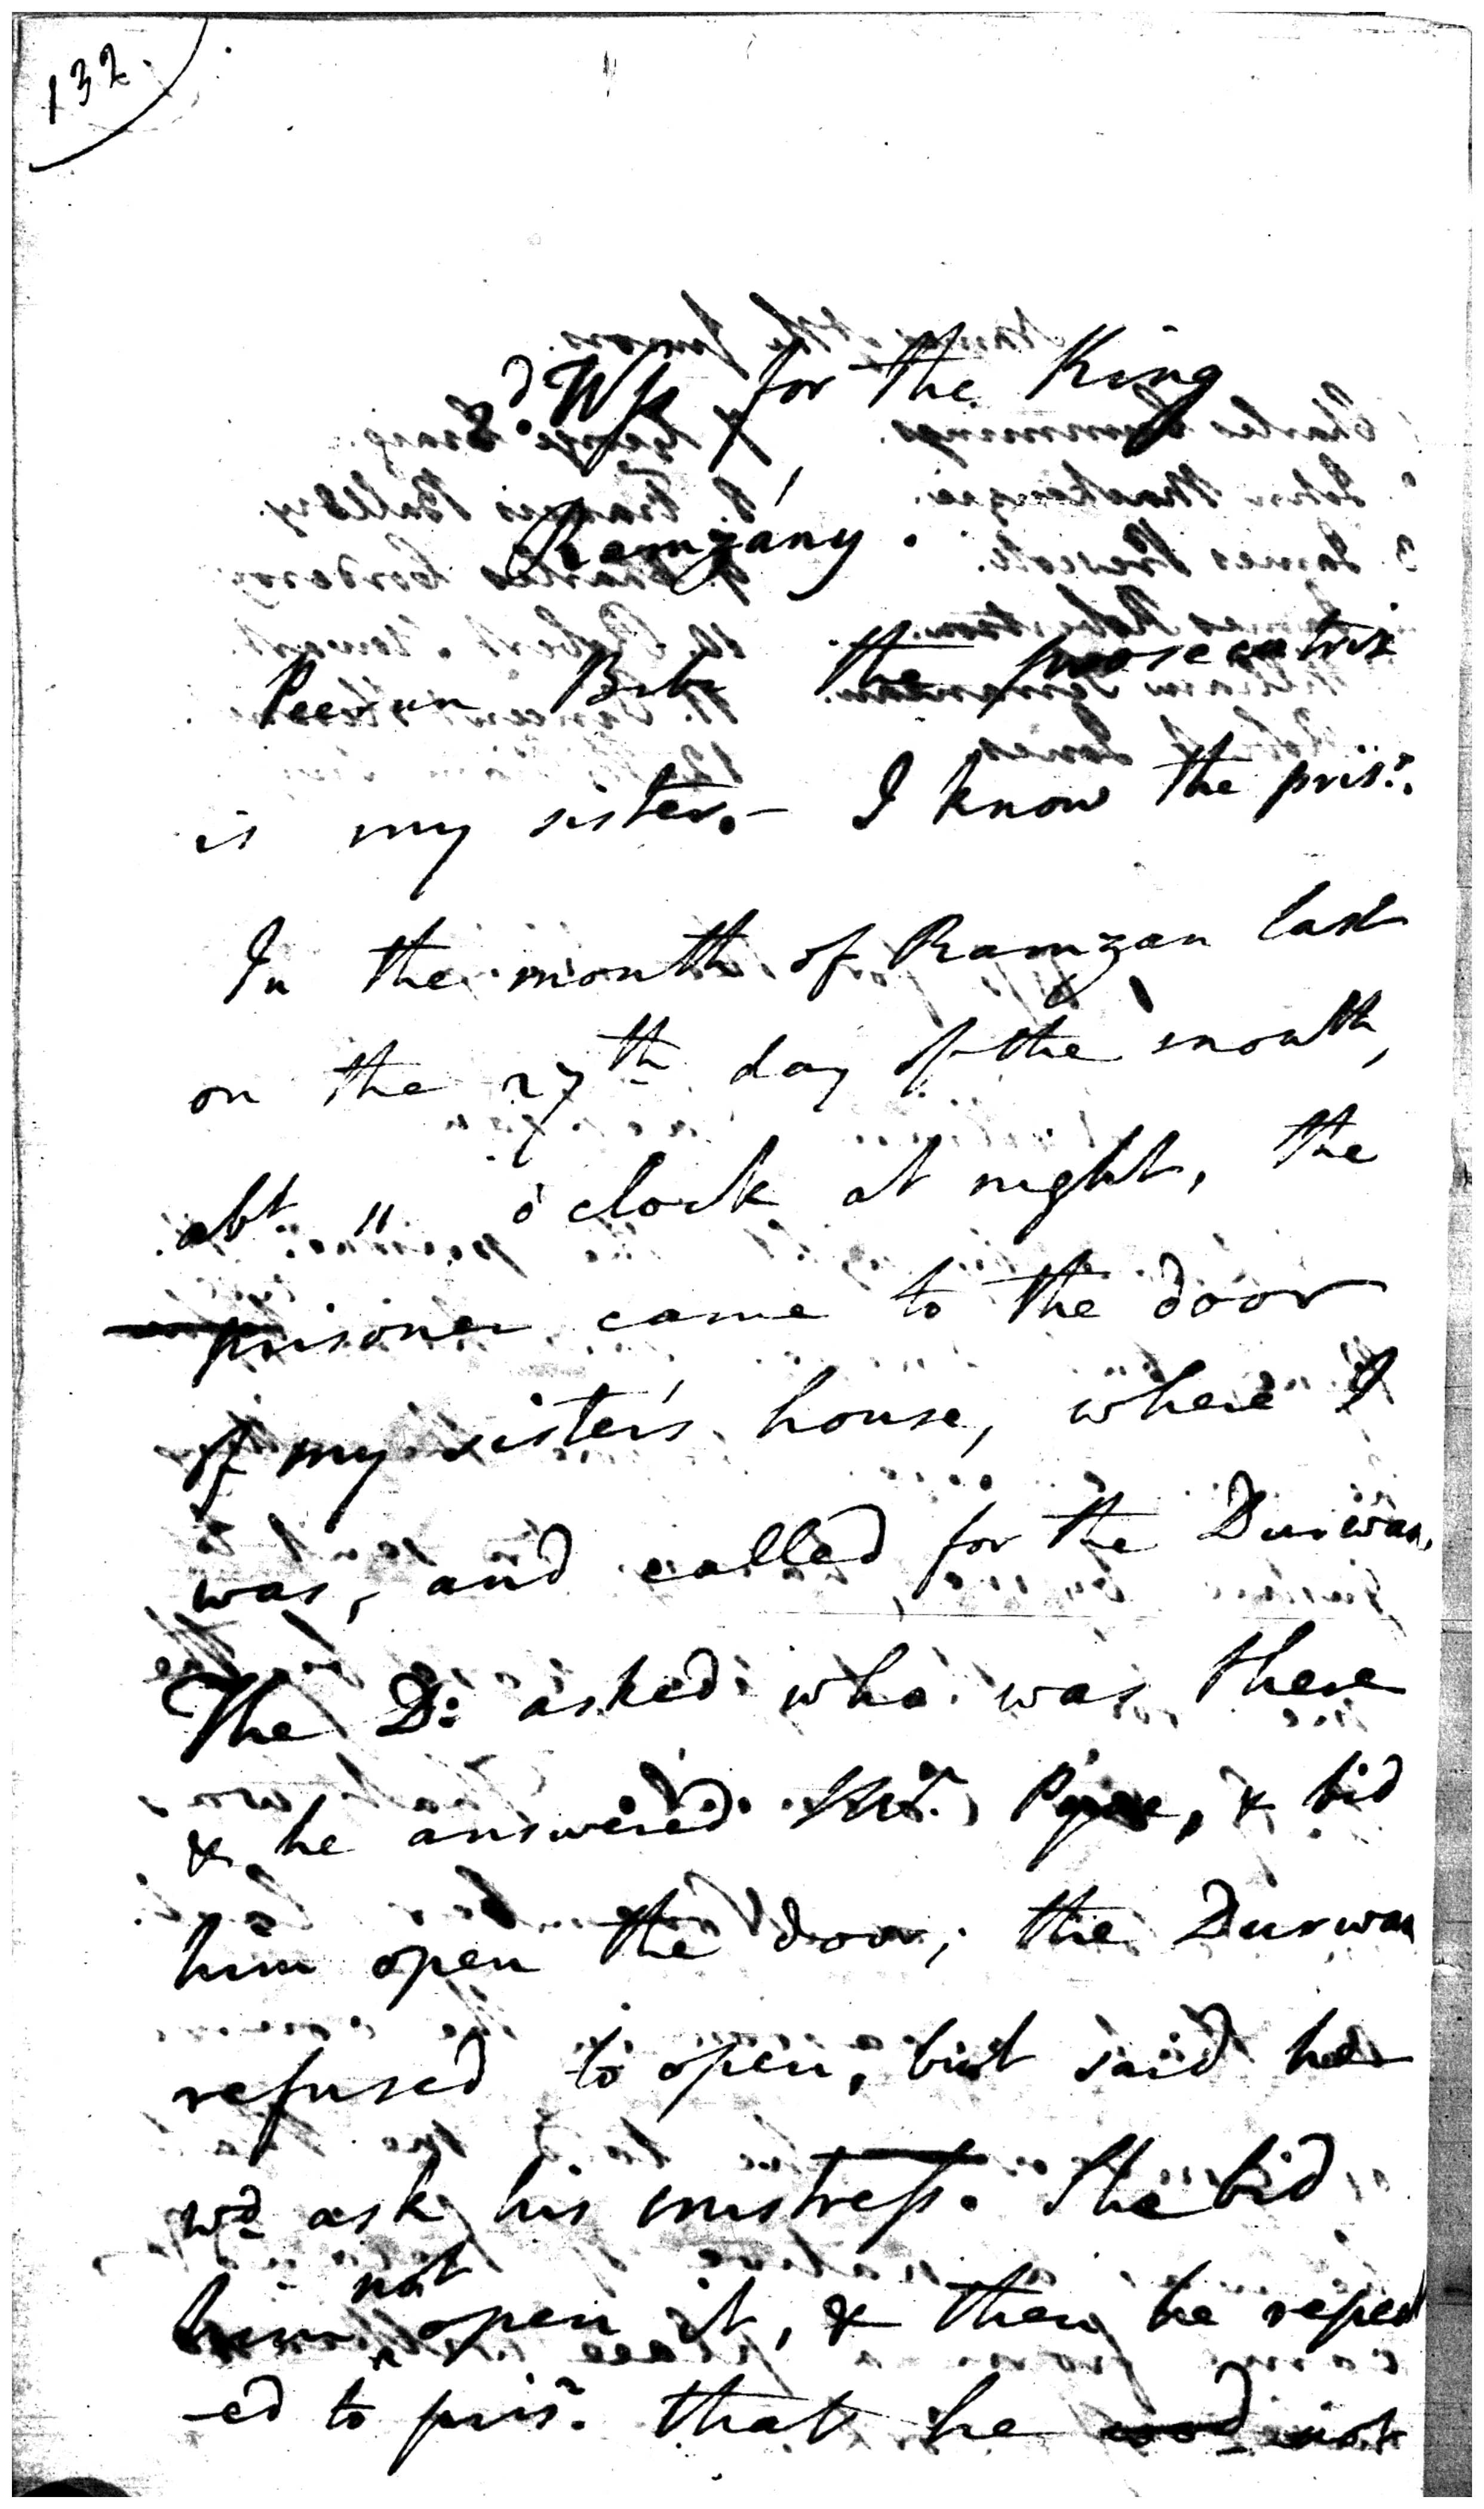 132.
2d. Wits for the King
Ramzány.
Peerun Bibi the prosecutrix
is my sister. — I know the prisr.
In the month of Ramzan last
on the 27th day of the month,
abt 11 o'clock at night, the
prisoner came to the door
of my sister's house, where I
was, and called for the Durwan,
The D: asked who was there
& he answered Mr. & bid
him open the door; the Durwan
refused to open, but said he
wd ask his mistress. She bid
him not open it, & then he repeat
-ed to prisr. that he wod not